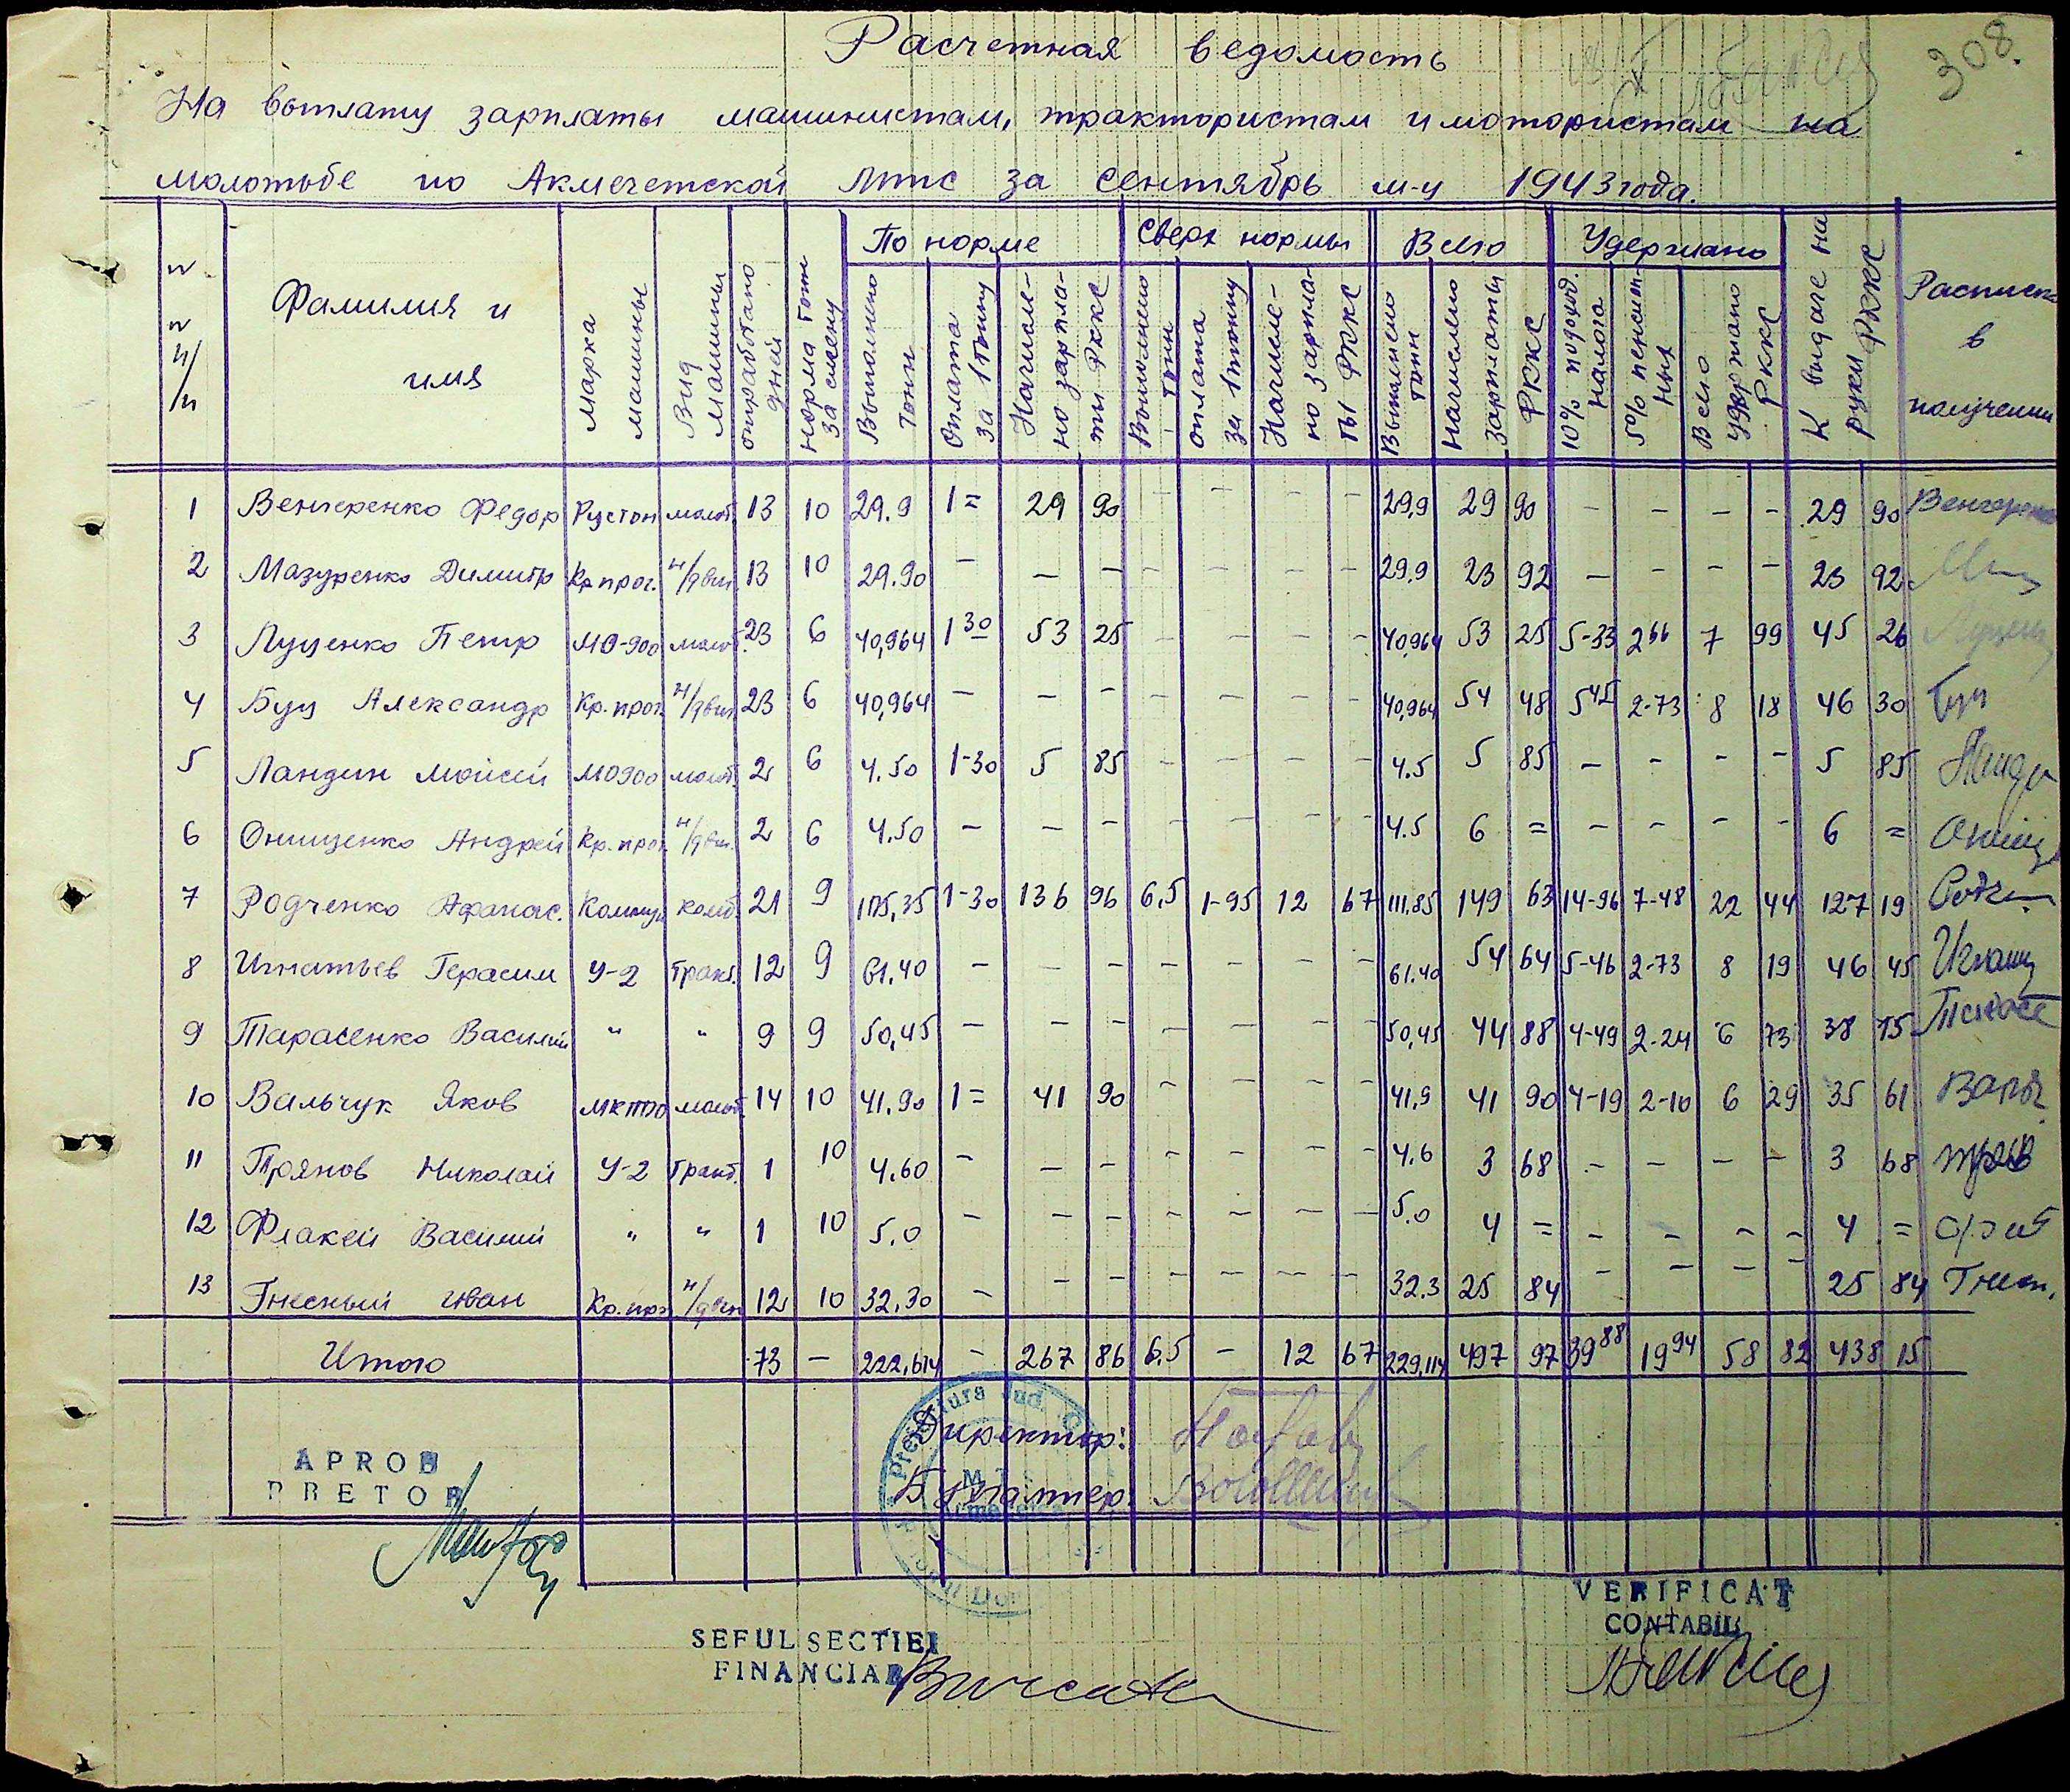 308.
Расчетная ведомость
На выплату зарплаты машинистам, трактористам и мотористам на
молотьбе по Акмечетской мтс за сентябрь м-ц 1943 года.
№ № п/п | Фамилия и имя | Марка машины | Вид машины | отработано дней | норма тонн за смену | По норме | Сверх нормы | Всего | Удержано | К выдаче на руки РККС | Расписка в получении
Выполнено тонн | Оплата за 1 тонну | Начисле-но зарпла-ты РККС | Выполнено тонн | оплата за 1 тонну | Начисле-но зарпла-ты РККС | Выполнено тонн | Начислено зарплаты РККС | 10% подоход. налога | 5% пенсион-ных | Всего удержано РККС
1 Венгеренко Федор Рустон молот. 13 10 29.9 1= 29 90 - - - - 29,9 29 90 - - - - 29 90 Венгеренко
2 Мазуренко Димитр Кр. прог. н/двиг. 13 10 29.90 - - - - - - - 29,9 23 92 - - - - 23 92
3 Луценко Петр МО-900 молот. 23 6 40,964 1 30 53 25 - - - - 40,964 53 25 5-33 2 66 7 99 45 26
4 Буц Александр Кр. прог. н/двиг. 23 6 40,964 - - - - - - - 40,964 54 48 5 45 2-73 8 18 46 30 Буц
5 Ландин Мойсей МО900 молот. 2 6 4.50 1-30 5 85 - - - - 4.5 5 85 - - - - 5 85
6 Онищенко Андрей Кр. прог. н/двиг. 2 6 4.50 - - - - - - - 4.5 6 = - - - - 6 =
7 Родченко Афанас. Коммун. комб. 21 9 105,35 1-30 136 96 6,5 1-95 12 67 111,85 149 63 14-96 7-48 22 44 127 19
8 Игнатьев Герасим У-2 тракт. 12 9 61.40 - - - - - - - 61.40 54 64 5-46 2-73 8 19 46 45
9 Тарасенко Василий " " 9 9 50,45 - - - - - - - 50,45 44 88 4-49 2-24 6 73 38 15
10 Вальчук Яков МКТТО молот. 14 10 41.90 1= 41 90 - - - - 41,9 41 90 4-19 2-10 6 29 35 61
11 Прянов Николай У-2 тракт. 1 10 4.60 - - - - - - - 4.6 3 68 - - - - 3 68
12 Флакей Василий " " 1 10 5.0 - - - - - - - 5.0 4 = - - - - 4 =
13 Гнесный Иван Кр. прог. н/двиг. 12 10 32.30 - - - - - - - 32.3 25 84 - - - - 25 84 Гнесн.
Итого 73 - 222,614 - 267 86 6,5 - 12 67 229,114 497 97 39 88 19 94 58 82 438 15
Директор:
Бухгалтер:
APROB
PRETOR
SEFUL SECTIEI
FINANCIAR
VERIFICAT
CONTABIL